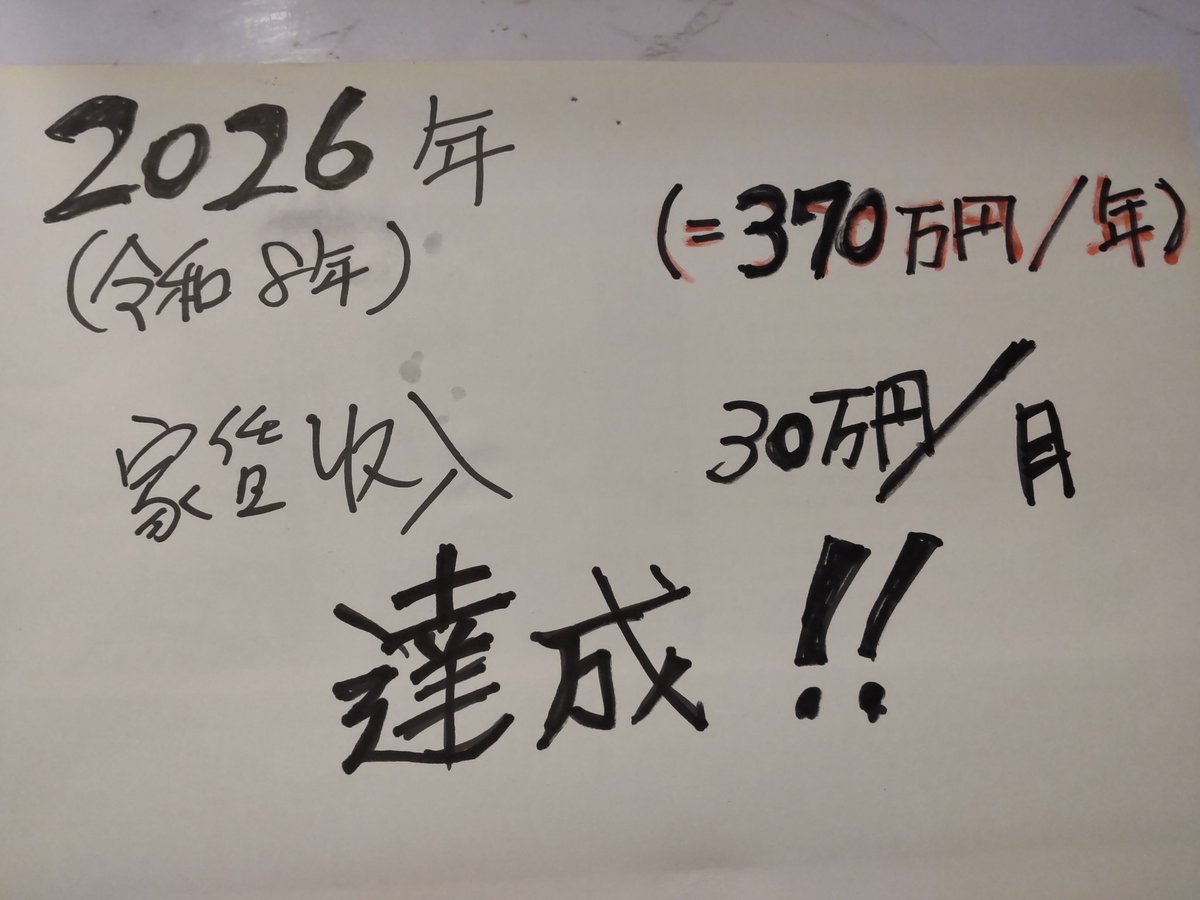 2026年
(令和8年)
(=370万円/年)
家賃収入 30万円/月
達成!!